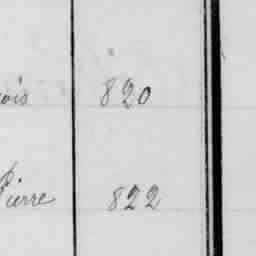 ois 820
Pierre 822